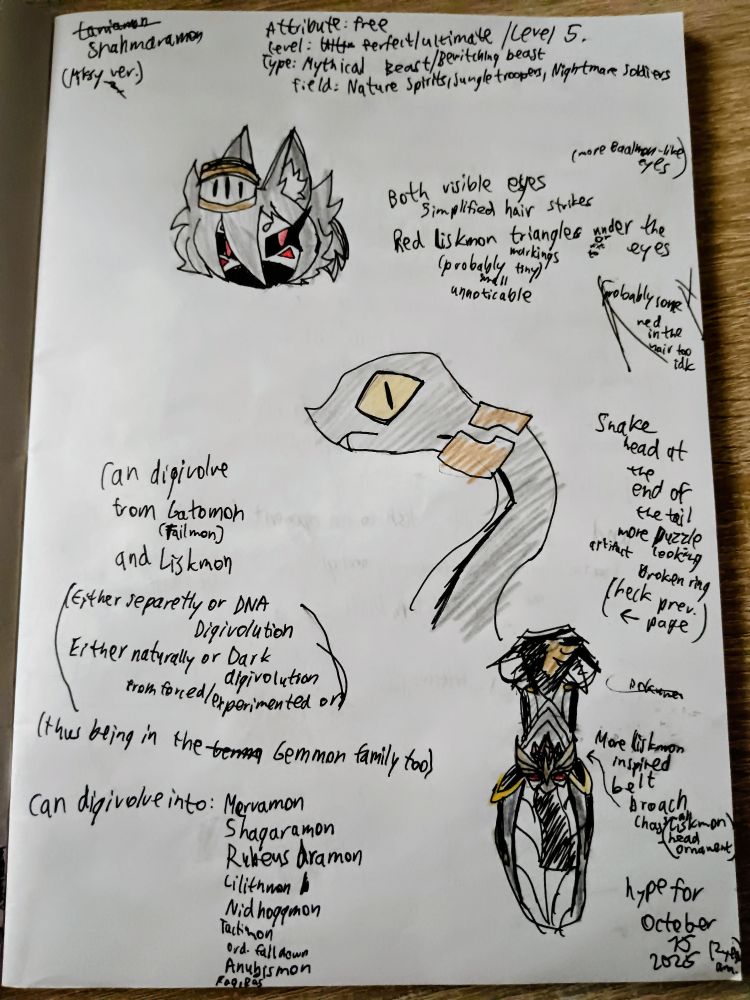 Shahmaramon
Attribute: free
Level: perfect/ultimate /Level 5.
Type: Mythical Beast/Bewitching beast
Field: Nature Spirits, Jungle troopers, Nightmare Soldiers
(more Baalmon-like
eyes)
Both visible eyes
Simplified hair strikes
Red Liskmon triangles under the
or next to
eyes
markings
(probably tiny)
small
unnoticable
Probably some
red
in the
hair too
idk
Snake
head at
the
end of
the tail
more puzzle
artifact looking
Broken ring
(check prev.
← page)
Can digivolve
from Gatomon
(Tailmon)
and Liskmon
(Either separetly or DNA
Digivolution
Either naturally or Dark
digivolution
from forced/experimented on)
(thus being in the Gemmon family too)
More Liskmon
inspired
belt
broach
Liskmon
head
ornament)
Can digivolve into: Mervamon
Shaqaramon
Lilithmon
Nidhoggmon
Tactimon
ord. falldown
Anubismon
hype for
October
2025